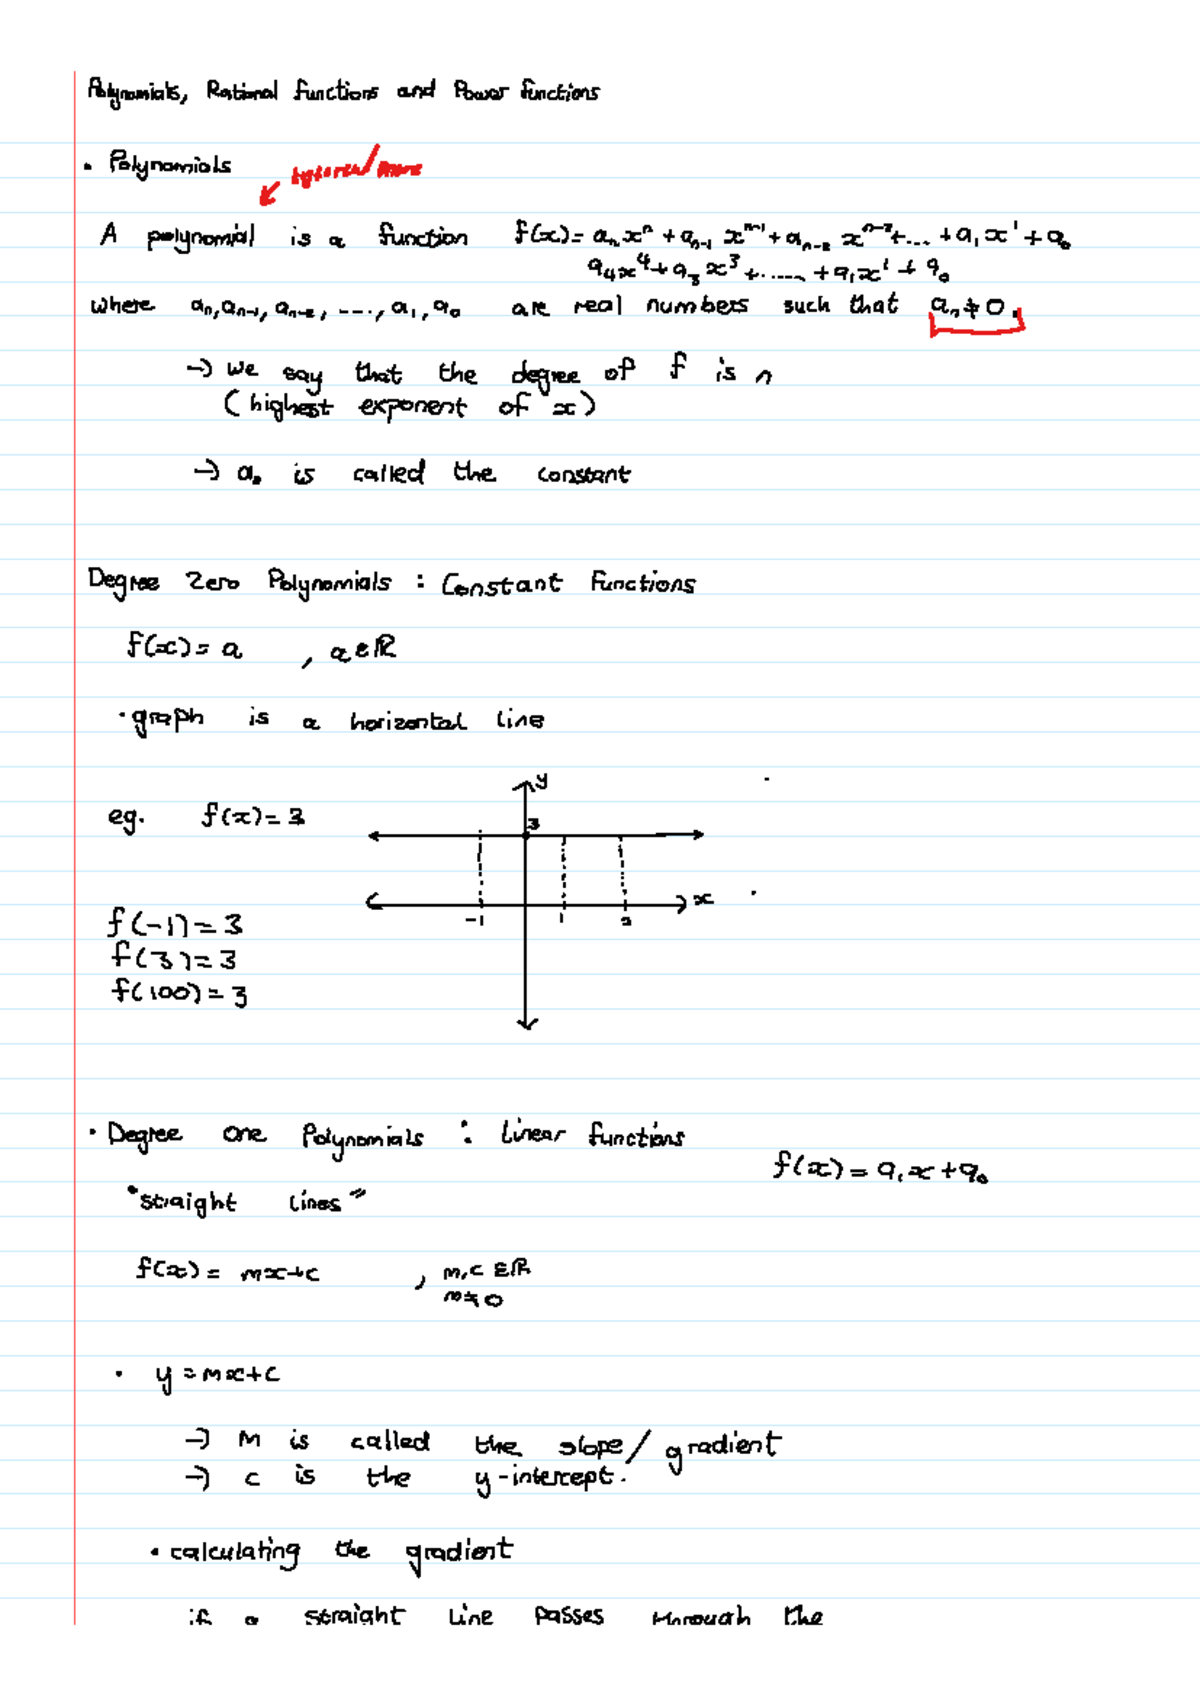 Polynomials, Rational functions and Power functions
• Polynomials
A polynomial is a function f(x) = aₙxⁿ + aₙ₋₁ xⁿ⁻¹ + aₙ₋₂ xⁿ⁻² + ... + a₁x¹ + a₀
a₄x⁴ + a₃x³ + ...... + a₁x¹ + a₀
where aₙ, aₙ₋₁, aₙ₋₂, ...., a₁, a₀ are real numbers such that aₙ ≠ 0.
→ we say that the degree of f is n
(highest exponent of x)
→ a₀ is called the constant
Degree Zero Polynomials : Constant Functions
f(x) = a , a ∈ ℝ
• graph is a horizontal line
eg. f(x) = 3
y
3
x
-1 1 2
f(-1) = 3
f(3) = 3
f(100) = 3
• Degree one Polynomials : linear functions
f(x) = a₁x + a₀
"straight lines"
f(x) = mx+c , m,c ∈ ℝ
m ≠ 0
• y = mx+c
→ M is called the slope/gradient
→ c is the y-intercept.
• calculating the gradient
if a straight line passes through the